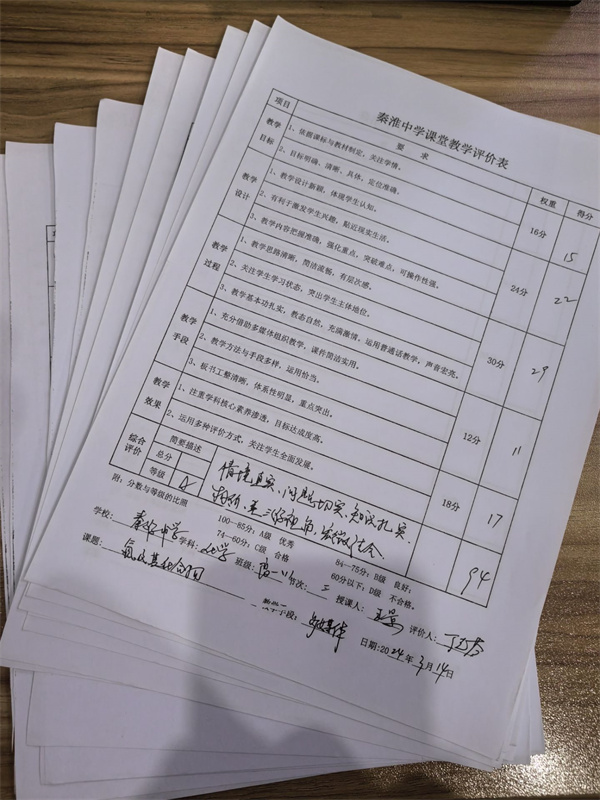 秦淮中学课堂教学评价表
项目 要 求 权重 得分
教学目标 1、依据课标与教材制定，关注学情。 16分 15
2、目标明确、清晰、具体，定位准确。
教学设计 1、教学设计新颖，体现学生认知。 24分 22
2、有利于激发学生兴趣，贴近现实生活。
3、教学内容把握准确，强化重点，突破难点，可操作性强。
教学过程 1、教学思路清晰，简洁流畅，有层次感。 30分 29
2、关注学生学习状态，突出学生主体地位。
3、教学基本功扎实，教态自然，充满激情，运用普通话教学，声音宏亮。
教学手段 1、充分借助多媒体组织教学，课件简洁实用。 12分 11
2、教学方法与手段多样，运用恰当。
3、板书工整清晰，体系性明显，重点突出。
教学效果 1、注重学科核心素养渗透，目标达成度高。 18分 17
2、运用多种评价方式，关注学生全面发展。
综合评价 简要描述 情境真实、问题切实、知识扎实
总分 94
等级 A
附：分数与等级的比照 100—85分：A级 优秀 84—75分：B级 良好；
74—60分：C级 合格 60分以下：D级 不合格。
学校： 秦淮中学 学科： 化学 班级： 高一 节次： 二 授课人： 评价人：
课题： 氯及其化合物 教学手段： 多媒体 日期:2024年3月14日